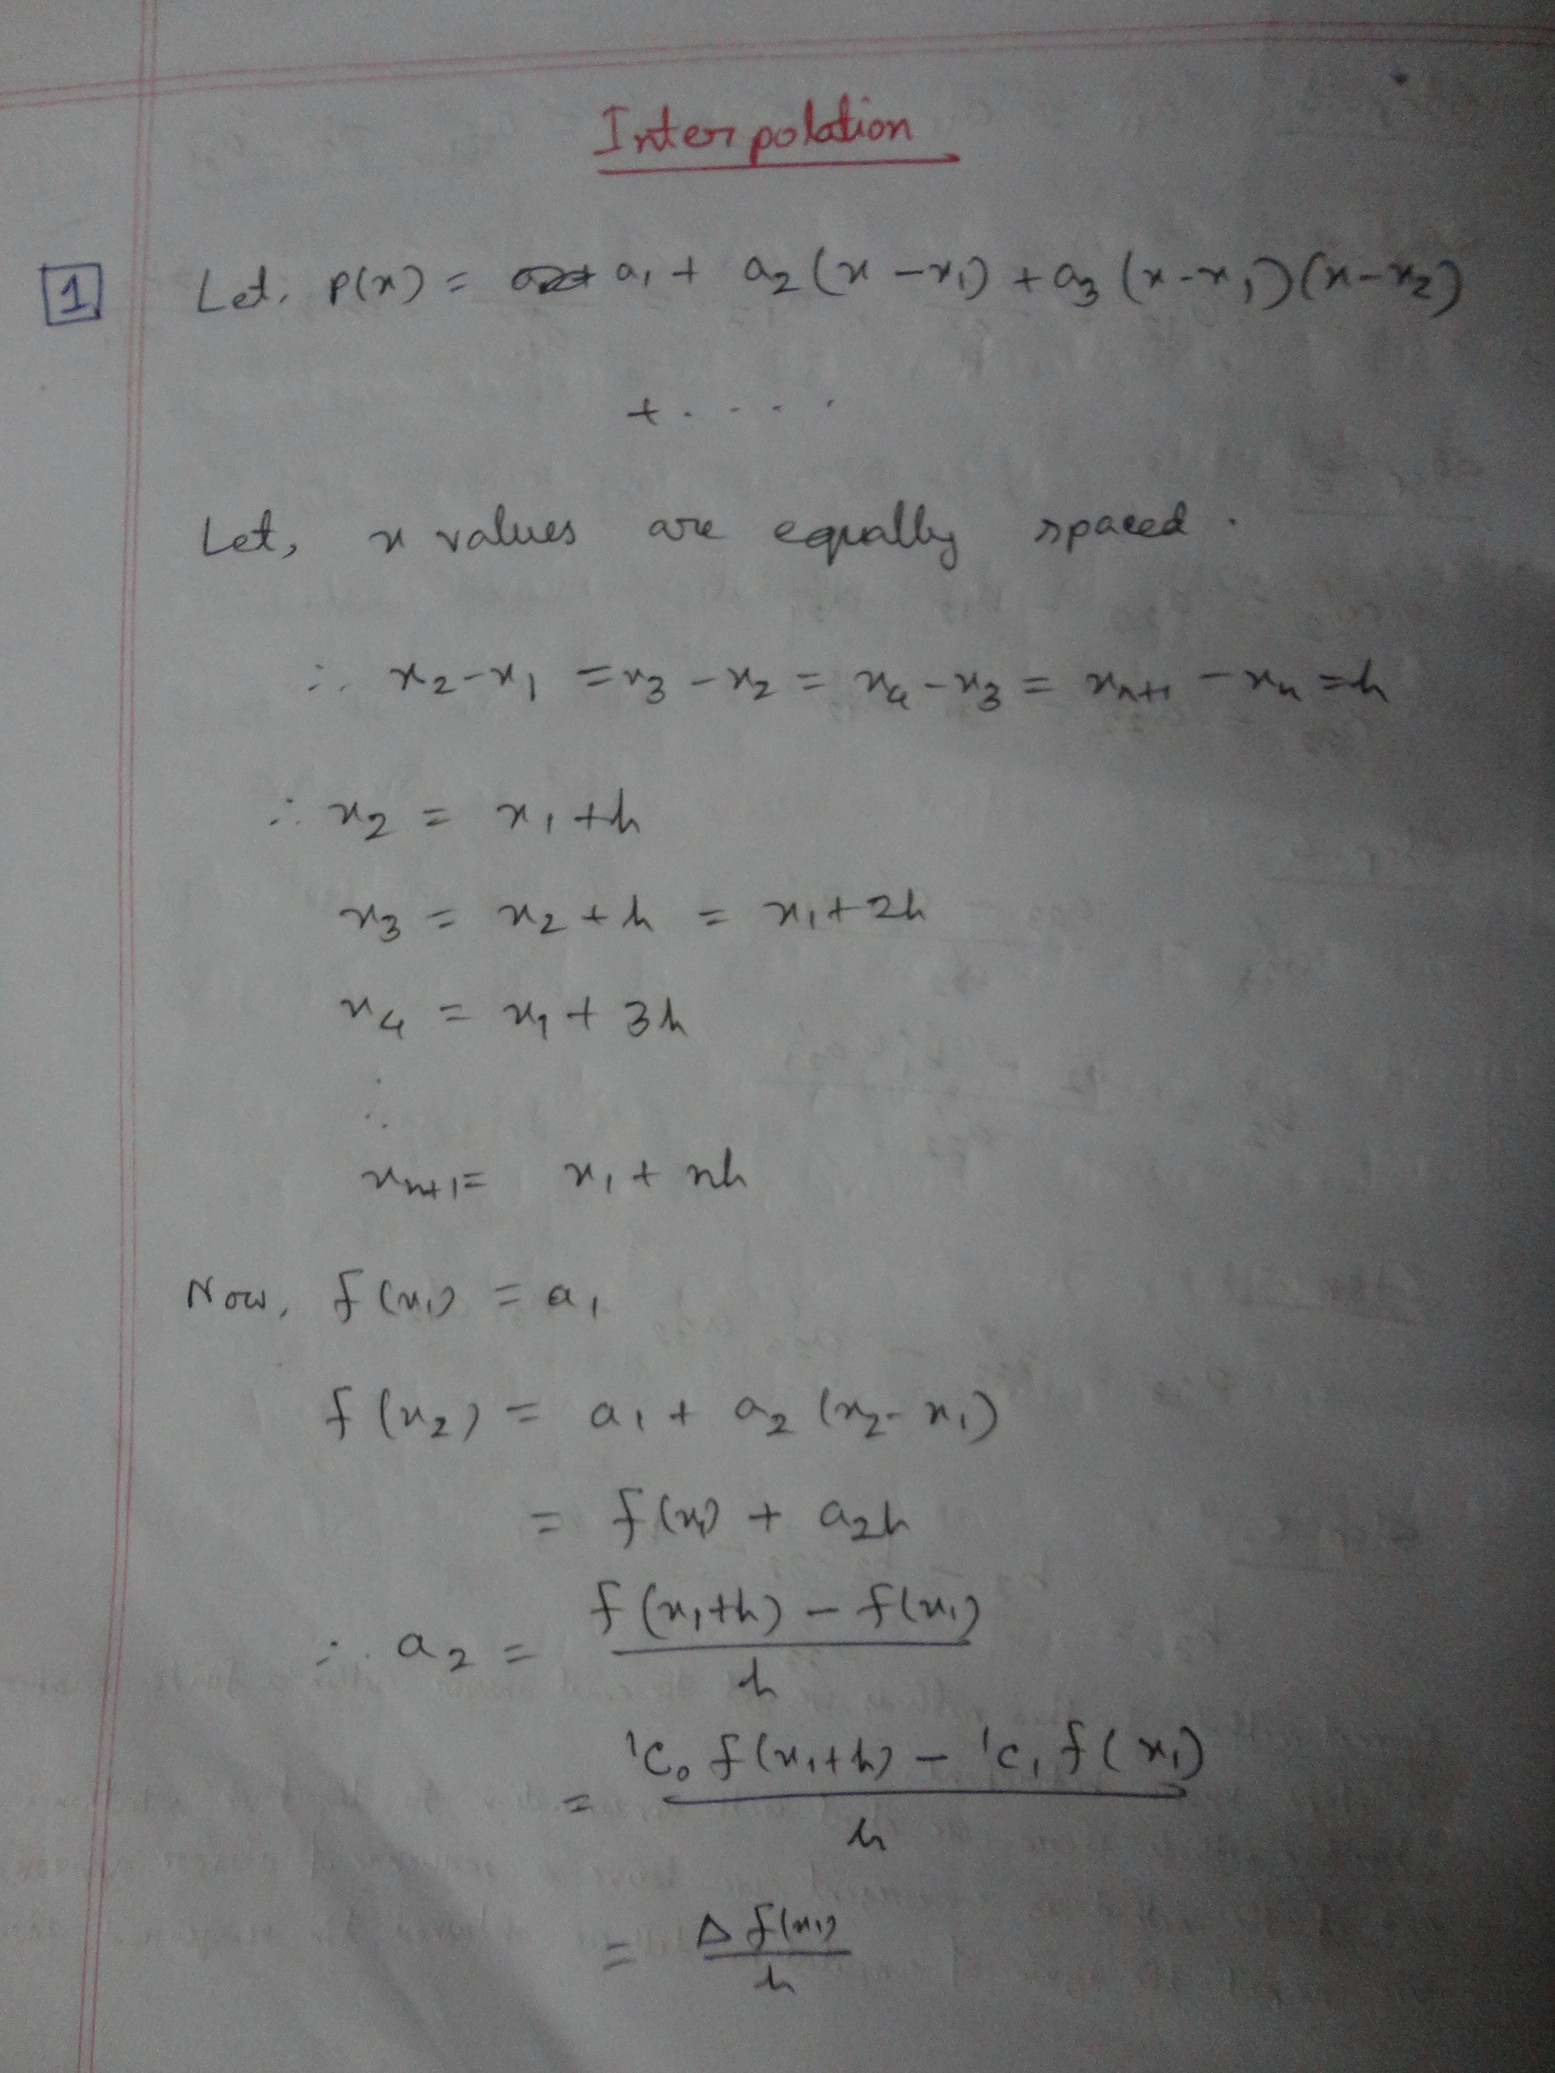 Interpolation
1 Let, P(x) = a₁ + a₂ (x - x₁) + a₃ (x - x₁) (x - x₂)
+ . . . . .
Let, x values are equally spaced.
∴ x₂ - x₁ = x₃ - x₂ = x₄ - x₃ = xₙ₊₁ - xₙ = h
∴ x₂ = x₁ + h
x₃ = x₂ + h = x₁ + 2h
x₄ = x₁ + 3h
⋮
xₙ₊₁ = x₁ + nh
Now, f(x₁) = a₁
f(x₂) = a₁ + a₂ (x₂ - x₁)
= f(x₁) + a₂h
∴ a₂ = f(x₁+h) - f(x₁) / h
= ¹C₀ f(x₁+h) - ¹C₁ f(x₁) / h
= Δ f(x₁) / h